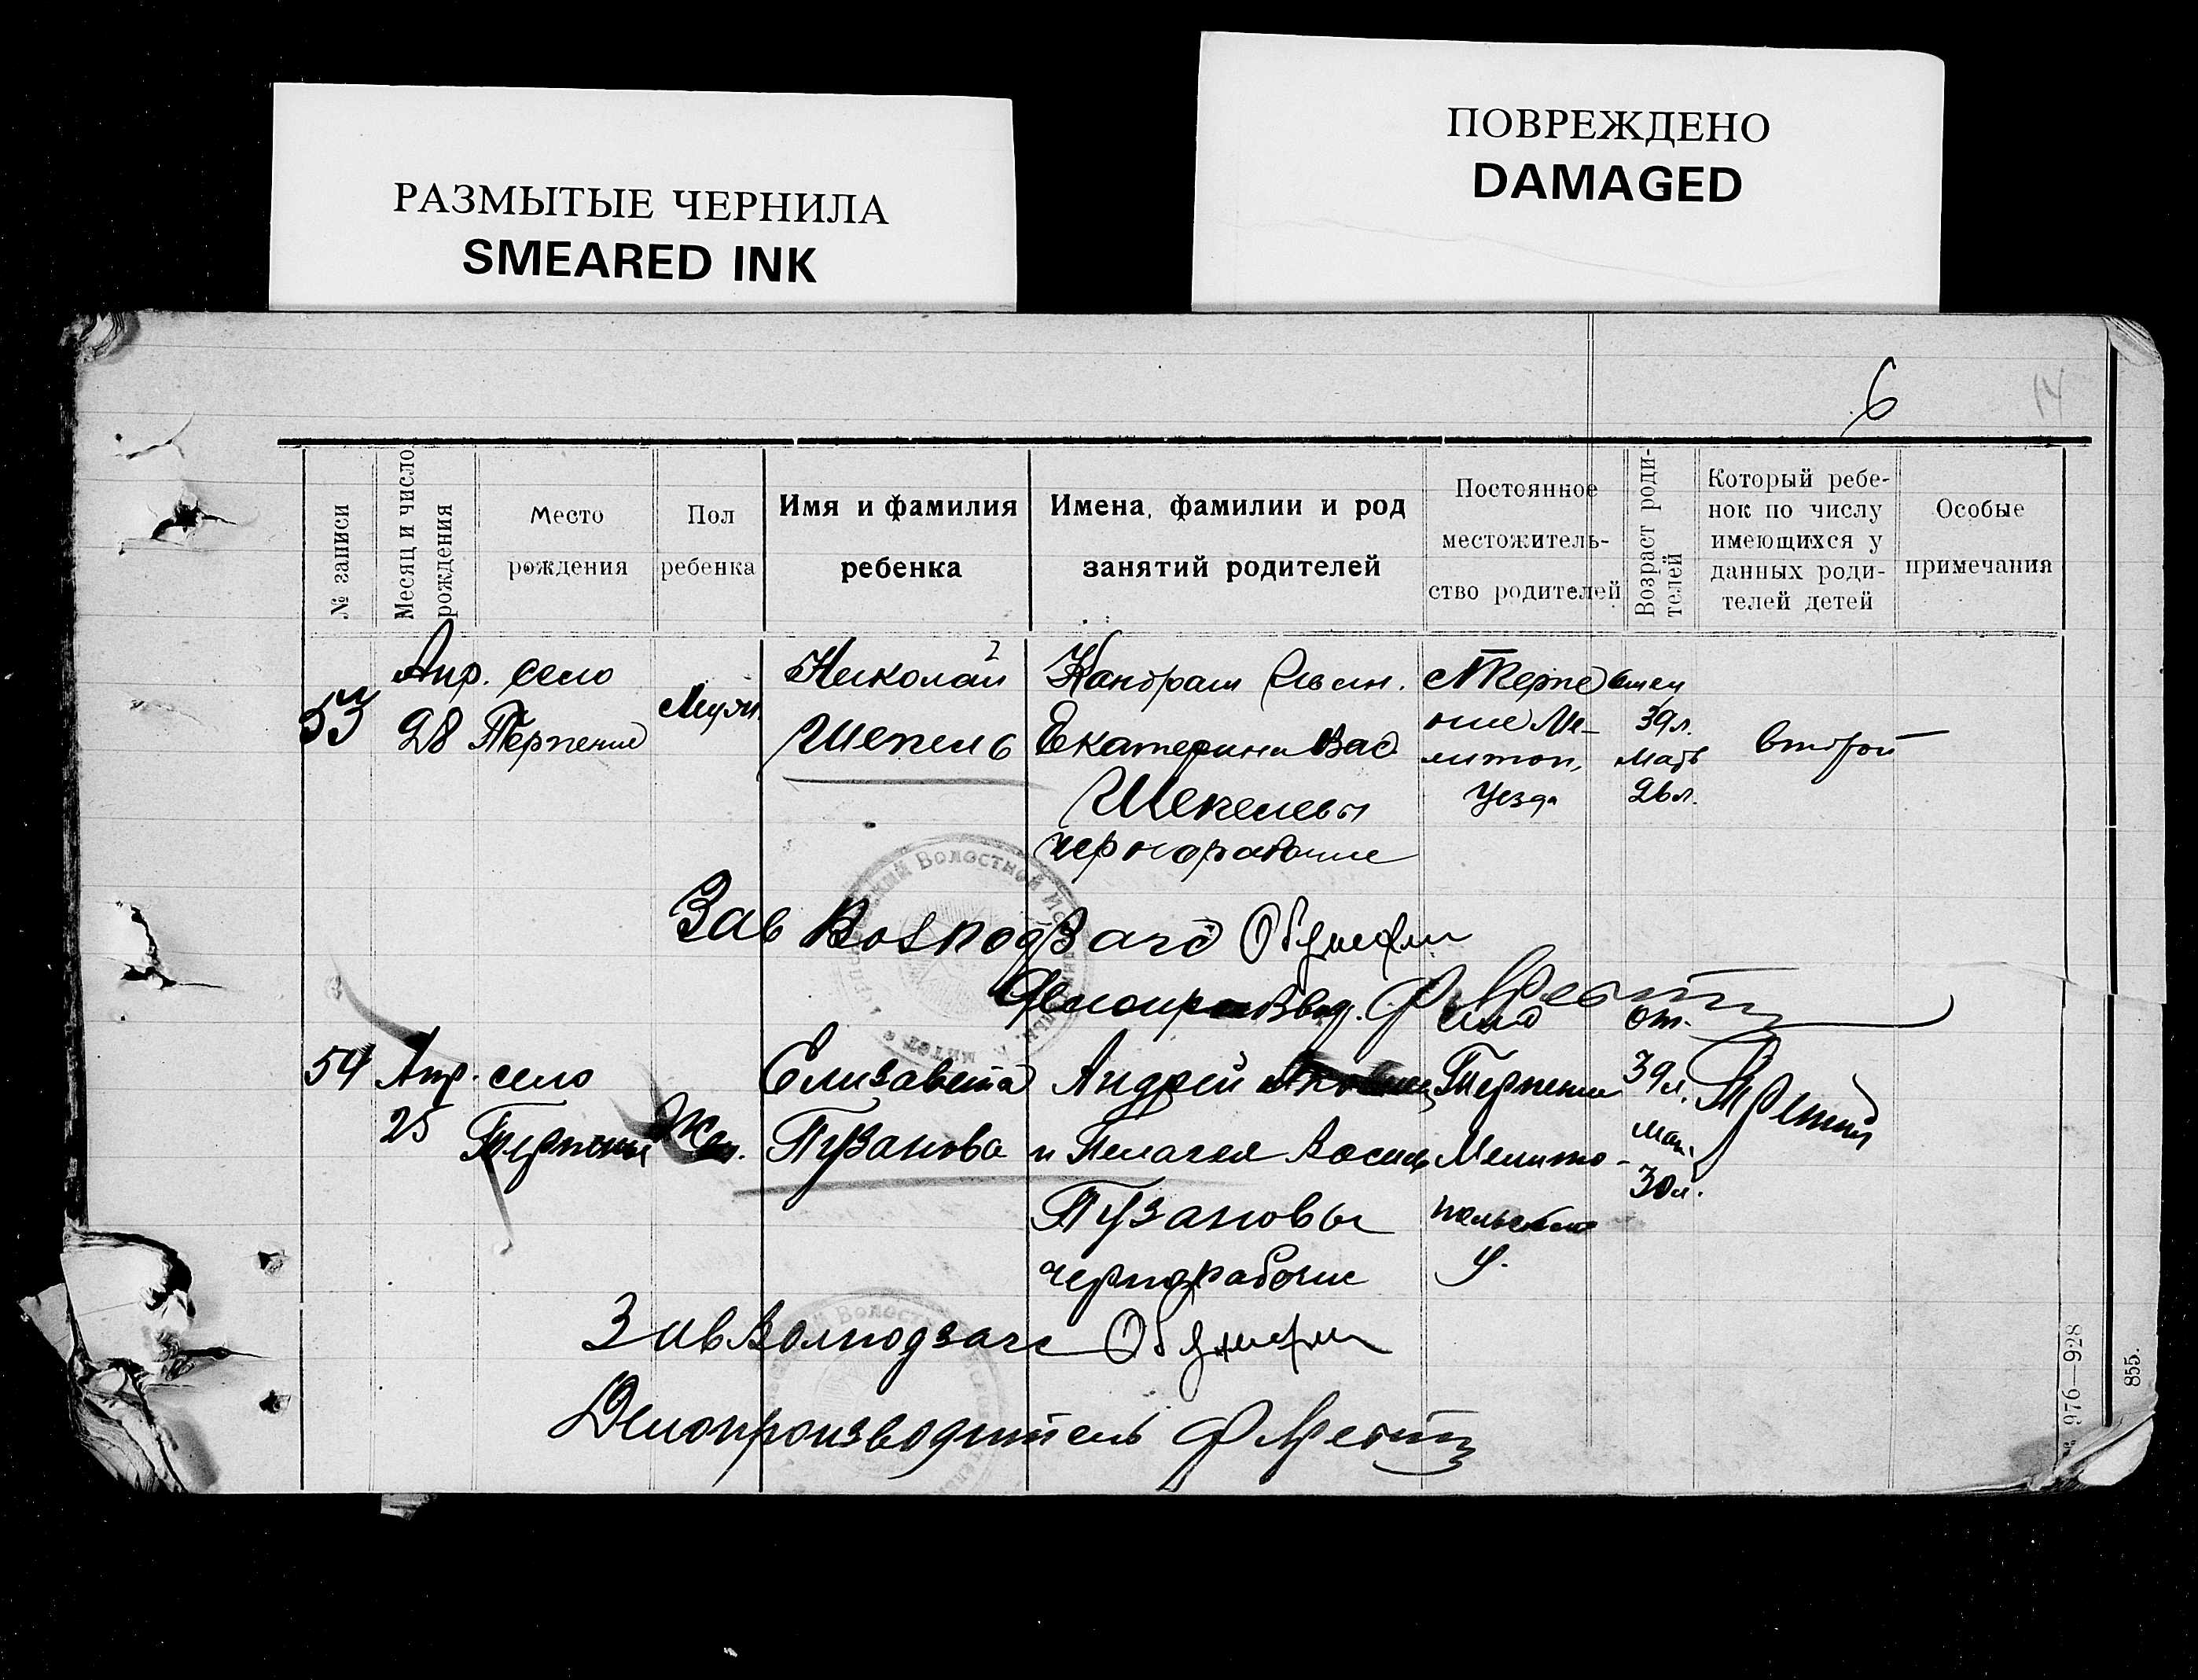 РАЗМЫТЫЕ ЧЕРНИЛА
SMEARED INK
ПОВРЕЖДЕНО
DAMAGED
6
№ записи
Месяц и число рождения
Место рождения
Пол ребенка
Имя и фамилия ребенка
Имена, фамилии и род занятий родителей
Постоянное местожитель-
ство родителей
Возраст роди-
телей
Который ребе-
нок по числу
имеющихся у
данных роди-
телей детей
Особые примечания
53
Апр.
28
село
Терпение
Муж.
Николай
Шепель
Кондрат
Екатерина Вас.
Шепелевы
чернорабочие
Терпе
ние Ме-
литоп.
Уезда
отец
39 л.
Мать
26 л.
второй
Зав
Делопроизвод.
54
Апр.
25
село
Терпение
Жен.
Елизавета
Пузанова
Андрей
и Пелагея Василь
Пузановы
чернорабочие
село
Терпение
Мелито-
польского
у.
от.
39 л.
мат.
30 л.
Третий
ЗавВолподзагс
Делопроизводитель
Волостной
976—928
855.